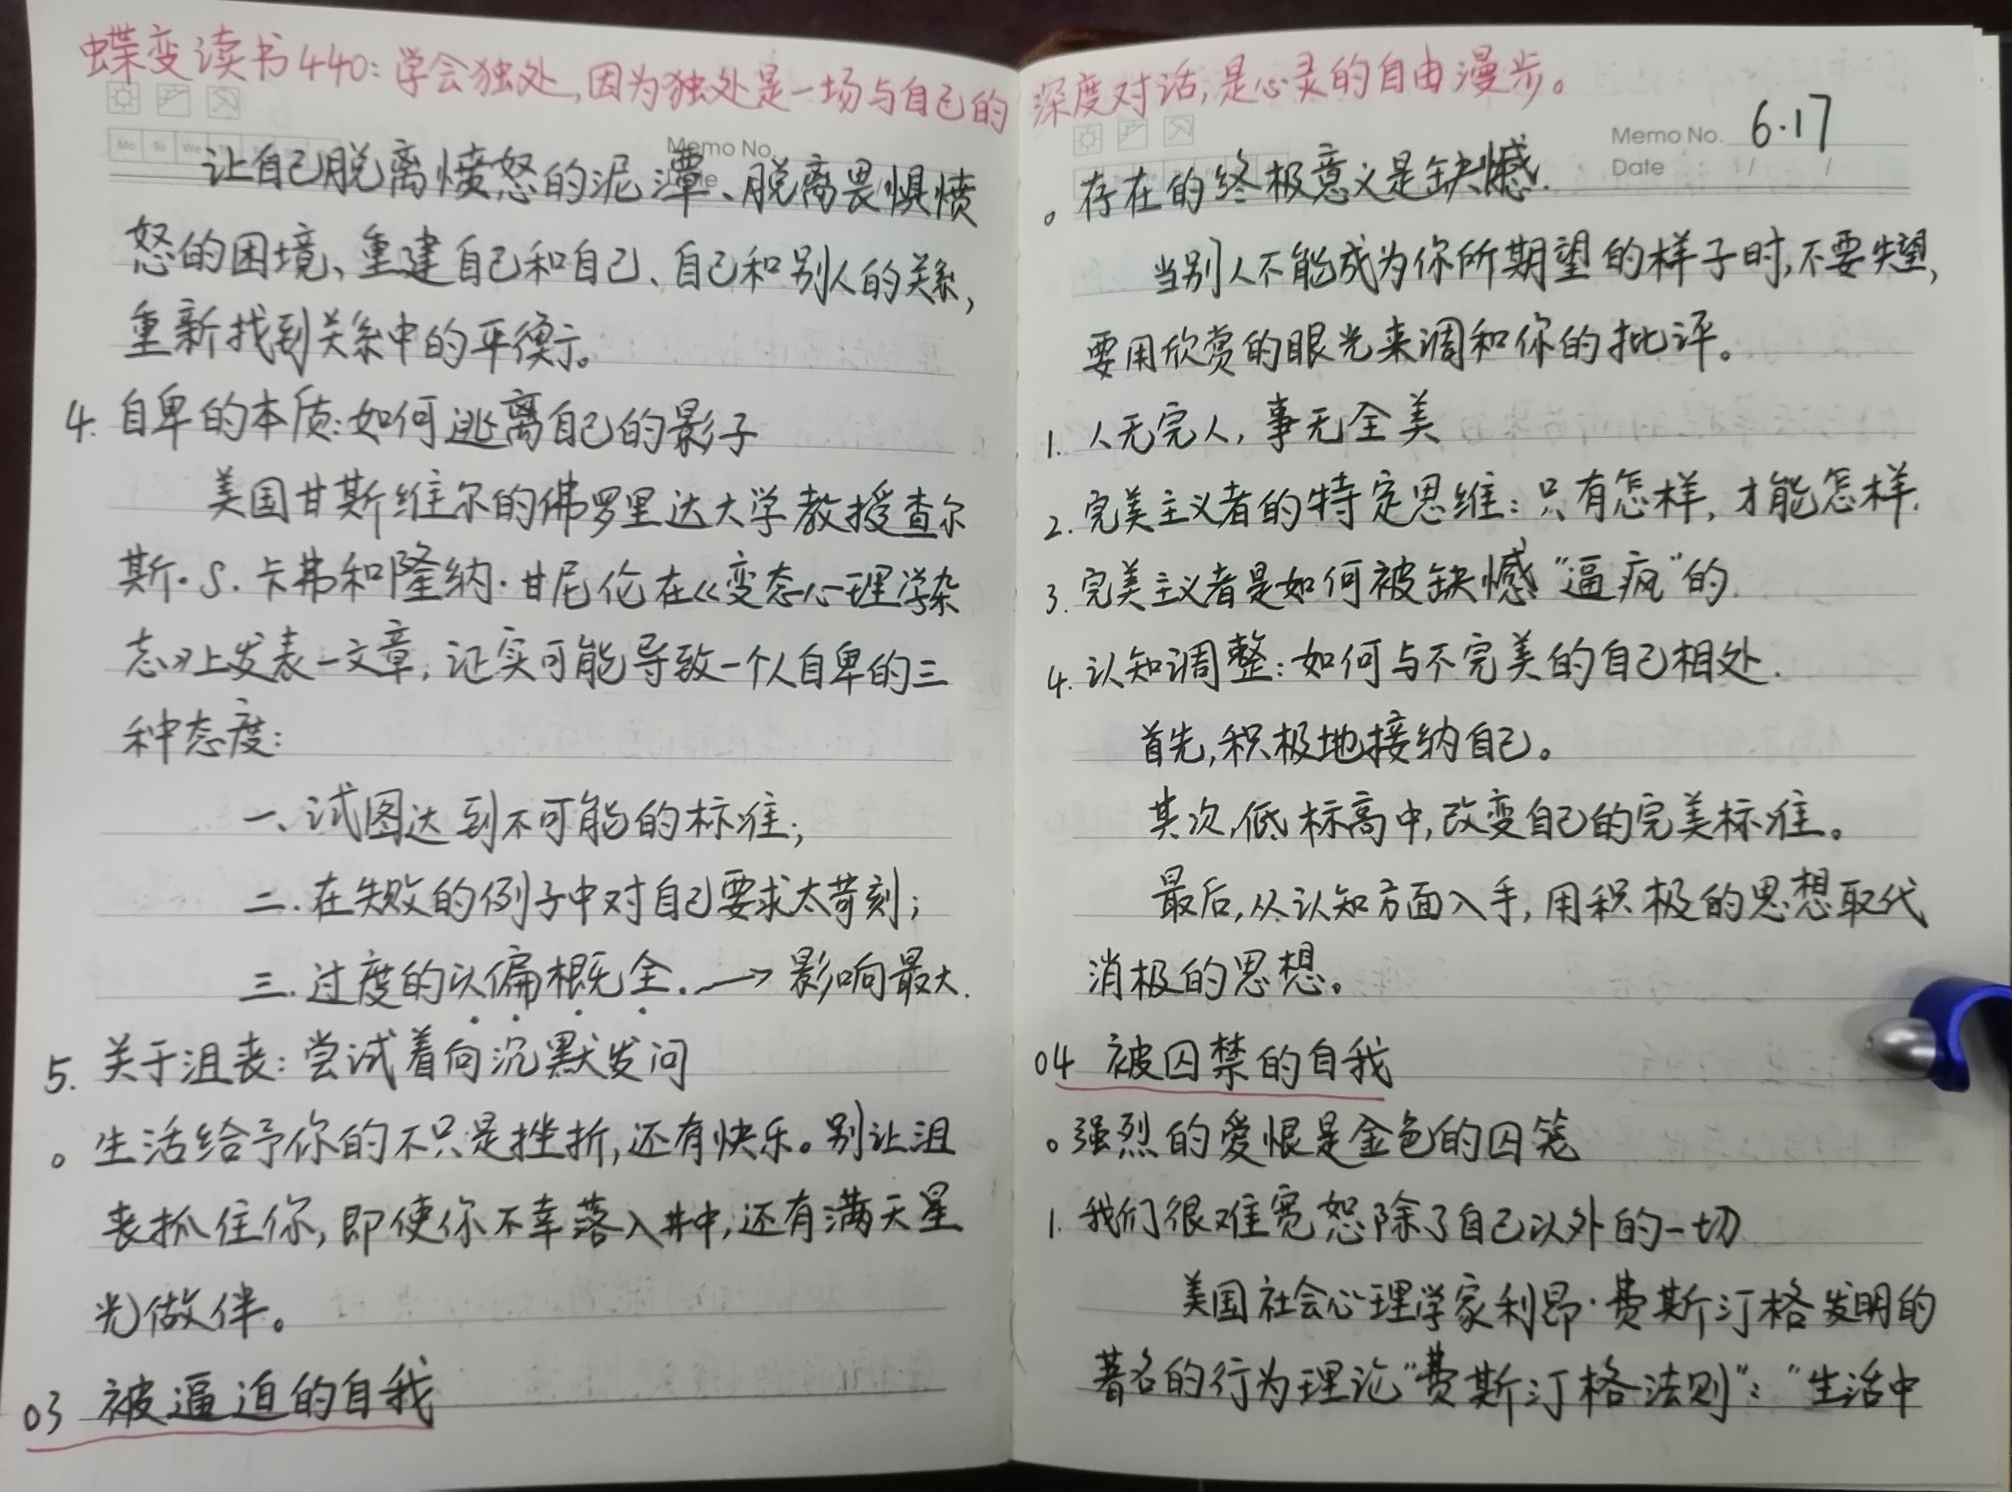 蝶变读书440:学会独处,因为独处是一场与自己的
Mo Tu We
Memo No.
让自己脱离愤怒的泥潭、脱离畏惧愤
怒的困境、重建自己和自己、自己和别人的关系,
重新找到关系中的平衡。
4. 自卑的本质:如何逃离自己的影子
美国甘斯维尔的佛罗里达大学教授查尔
斯·S.卡弗和隆纳·甘尼伦在《变态心理学杂
志》上发表一文章,证实可能导致一个人自卑的三
种态度:
一、试图达到不可能的标准;
二.在失败的例子中对自己要求太苛刻;
三.过度的以偏概全.→影响最大.
5. 关于沮丧:尝试着向沉默发问
。生活给予你的不只是挫折,还有快乐。别让沮
丧抓住你,即使你不幸落入井中,还有满天星
光做伴。
03 被逼迫的自我
深度对话,是心灵的自由漫步。
Memo No. 6.17
Date / /
。存在的终极意义是缺憾.
当别人不能成为你所期望的样子时,不要失望,
要用欣赏的眼光来调和你的批评。
1. 人无完人,事无全美
2. 完美主义者的特定思维:只有怎样,才能怎样.
3. 完美主义者是如何被缺憾“逼疯”的.
4. 认知调整:如何与不完美的自己相处.
首先,积极地接纳自己。
其次,低标高中,改变自己的完美标准。
最后,从认知方面入手,用积极的思想取代
消极的思想。
04 被囚禁的自我
。强烈的爱恨是金色的囚笼
1. 我们很难宽恕除了自己以外的一切
美国社会心理学家利昂·费斯汀格发明的
著名的行为理论“费斯汀格法则”:“生活中